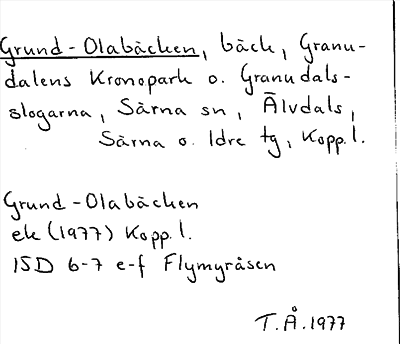 Grund-Olabäcken, bäck, Granu-
dalens Kronopark o. Granudals-
slogarna, Särna sn, Älvdals,
Särna o. Idre tg, Kopp.l.
Grund-Olabäcken
ek (1977) Kopp.l.
15D 6-7 e-f Flymyråsen
T.Å.1977